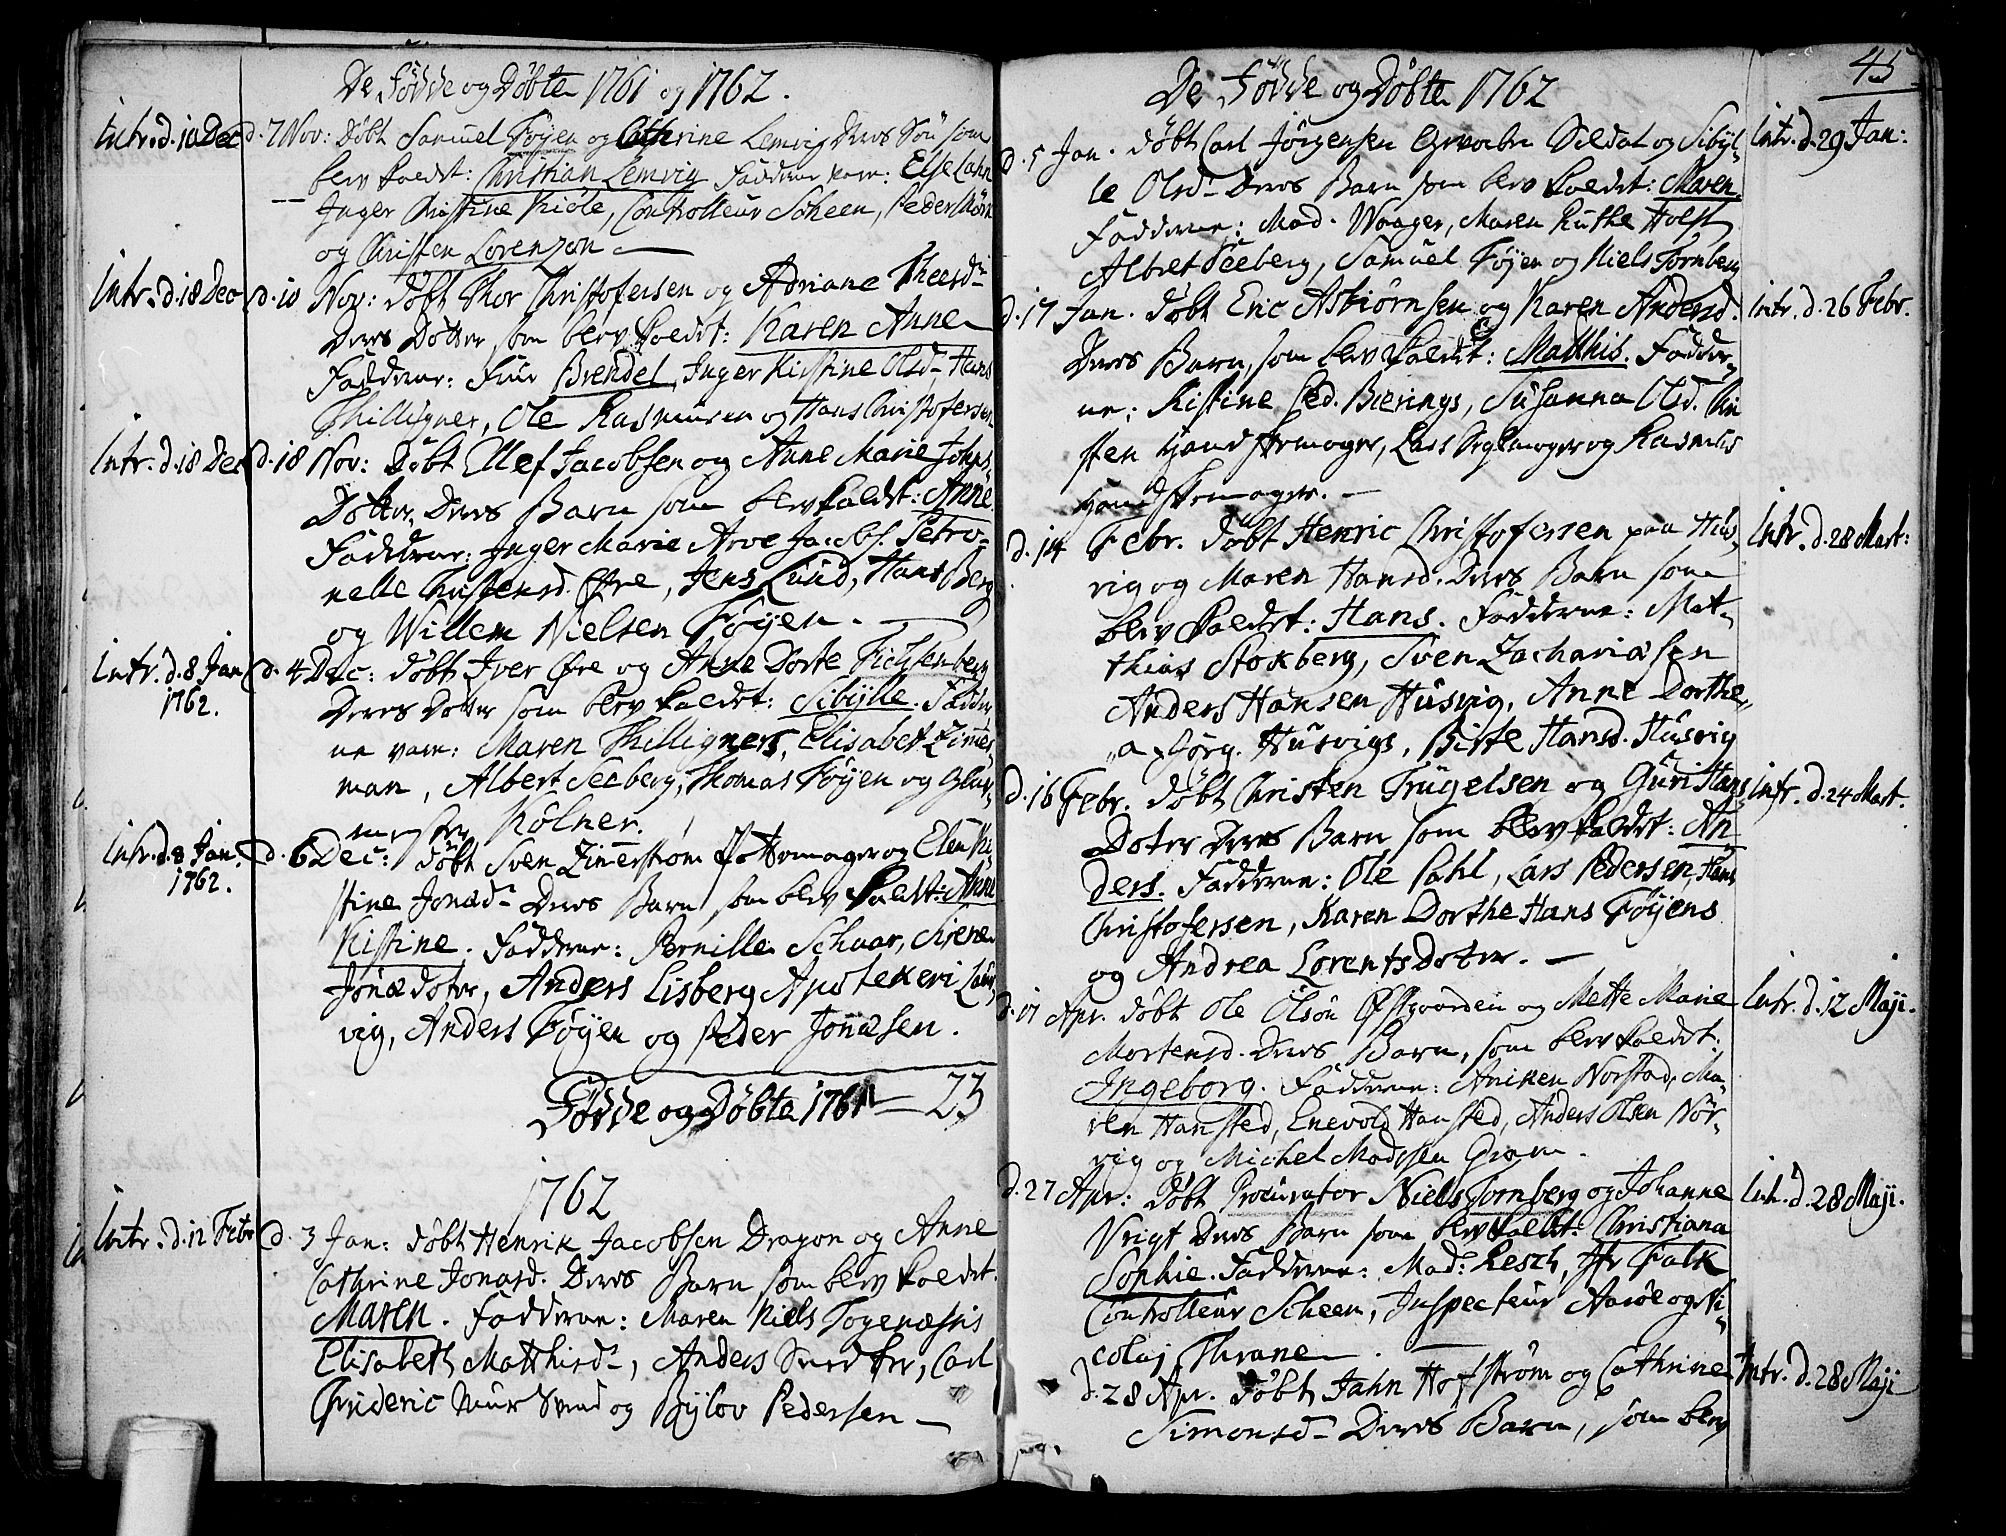 De Födde og Döbte 1761 og 1762.
Intr. d. 10 Dec d. 7 Nov: Döbt Samuel Föyen og Cathrine Lemvig Deres Sön som
blev kaldt: Christian Lemvig Fadderne vare: Else Cahn
Inger Kistine Kiöle, Controlleur Scheen, Peder Mörk
og Christen Lorenzon
Intr. d. 18 Dec d. 10 Nov: döbt Thor Christofersen og Adriane Theersd.
Deres Dotter som blev kaldt: Karen Anne
Fadderne: Frue Brendel, Inger Kirstine Olsd. Hans
Thilligner, Ole Rasmusen og Hans Christofersen
Intr. d. 18 Dec d. 18 Nov: Döbt Ellef Jacobsen og Anne Marie Johns
Dotter, Deres Barn som blev kaldt: Anne
Fadderne: Inger Marie Arve Jacobs. Petro-
nelle Christensd. Øre, Jens Lund, Hans Berg
og Willem Nielsen Föyen.
Intr. d. 8 Jan 1762. d. 4 Dec: döbt Iver Øre og Anne Dorte Fichsenberg
Deres Dotter som blev kaldt: Sibylle. Fadder
ne vare: Maren Thilligners, Elisabet Zimmer
man, Albert Seeberg, Thomas Föyen og Glar-
mester Kölner.
Intr. d. 8 Jan. 1762. d. 6 Dec: döbt Sven Zimerström Pottemager og Elen Ki
stine Jonæd. Deres Barn som blev kaldt: Anne
Kistine. Fadderne: Pernille Schaar, Sirene
Jonædoter, Anders Lisberg Apotekeri Laur
vig, Anders Föyen og Peder Jonæsen.
Födde og Döbte 1761 — 23
1762
Intr. d. 12 Febr d. 3 Jan: döbt Henrik Jacobsen Dragon og Anne
Cathrine Jonasd. Deres Barn som blev kaldt.
Maren. Fadderne: Maren Niels Togenæsiis
Elisabeth Matthisd., Anders Snedker, Carl
Frideric Muur Svend og Bylov Pedersen
45
De Födde og Döbte 1762
d. 5 Jan. döbt Carl Jörgensen Gevorben Soldat og Sibyl- Intr. d. 29 Jan:
le Olsd. Deres Barn som blev kaldt: Maren
Fadderne: Mad. Waager, Maren Ruthe Holst
Albret Seeberg, Samuel Föyen og Niels Tornberg
d. 17 Jan. döbt Eric Asbiörnsen og Karen Andersd. Intr. d. 26 Febr.
Deres Barn, som blev kaldt: Mathis. Fadder-
ne: Kistine Ped. Bierings, Susanna Olsd. Chri
sten Handskemager, Lars Seglmager og Rasmus
Handskemager.
d. 14 Febr. döbt Henric Christofersen paa Hus- Intr. d. 28 Mart:
vig og Maren Hansd. Deres Barn som
blev kaldt: Hans. Fadderne: Mat-
thias Stokberg, Sven Zachariæsen
Anders Hansen Husvig, Anne Dorthe
a Jörg. Husvigs, Birte Hansd. Husvig
d. 16 Febr. döbt Christen Trugelsen og Guri Hans Intr. d. 24 Mart.
Doter Deres Barn som blev kaldt: An
ders. Fadderne: Ole Pahl, Lars Pedersen, Hans
Christofersen, Karen Dorthe Hans Föyens
og Andrea Lorents Doter.
d. 17 Apr. döbt Ole Olsön Østgaarden og Mette Marie Intr. d. 12 Maji.
Mortensd. Deres Barn, som blev kaldt:
Ingeborg. Fadderne: Aniken Norstad, Ma-
ren Hansted, Enevold Hansted, Anders Olsen Nör-
vig og Michel Madssen Gram.
d. 27 Apr: Döbt Procurator Niels Tornberg og Johanne Intr. d. 28 Maji.
Vrigt Deres Barn som blev kaldt: Christiana
Sophie. Fadderne: Mad: Resch, Hr Falk
Controlleur Scheen, Inspecteur Aaröe og Ni-
colaj Thrane.
d. 28 Apr. döbt Jahn Hofström og Cathrine Intr. d. 28 Maji
Simonsd. Deres Barn, som blev